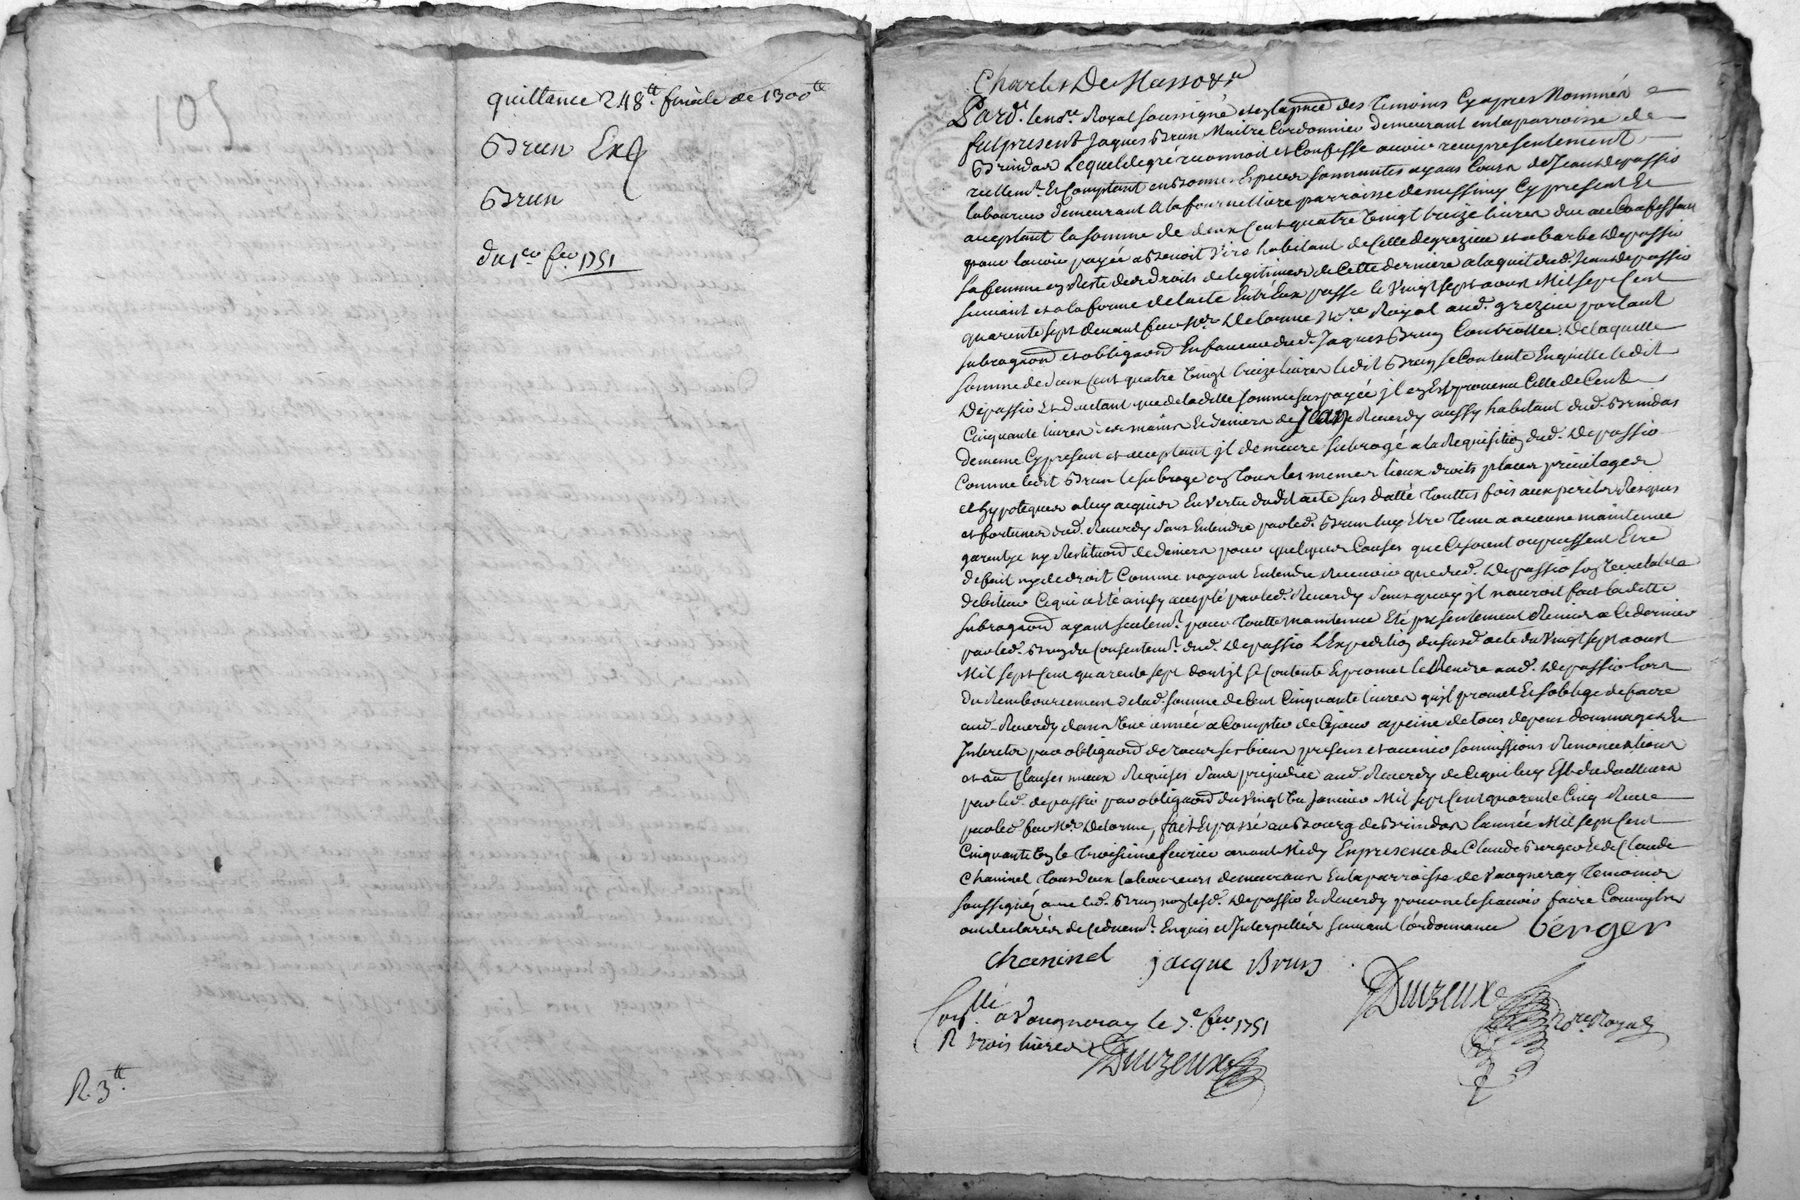 105
quittance 248tt. finale de 1300tt
Brun Exp
Brun
du 1er fev. 1751
R. 3tt.
Charles De Masso
Pard. le no.re Royal soussigné et en la pnce des Temoins Cyapres Nommés
fut present Jaques Brun Maitre Cordonnier demeurant en la parroisse de
Brindas Lequel de gré reconnoit et Confesse avoir reçu presentement
reellemt. Et Comptant en bonnes Especes sonnantes ayant Cours de Jean depassio
laboureur demeurant A la fournilliere parroisse de messimy Cy present Et
aceptant la somme de deux Cent quatre vingt treize livres du au Confessant
pour l'avoir payée a Benoit habitant de Celle de grezieu et a barbe Depassio
sa femme en Reste des droits de legitimes de Cette derniere a l'aquit dud. Jean depassio
suivant et a la forme de l'acte Entr'Eux passé le vingt sept aoust Mil sept Cent
quarente sept devant feu Me. Delorme No.re Royal aud. grezieu portant
subrogaõn et obligaõn En faveur dud. Jaques Brun Contrôllée, De laquelle
somme de deux Cent quatre vingt treize livres ledit Brun se Contente En quitte le dit
Depassio Et d'autant que de la ditte somme sus payée jl en Est provenu Celle de Cent
Cinquante livres des mains Et deniers de Jean Reverdy aussy habitant dud. Brindas
de meme Cy present et aceptant jl demeure subrogé a la Requisition dud. Depassio
Comme ledit Brun le subroge en tous les memes lieux droits places privileges
et hypoteques a luy aquises En vertu dudit acte sus datté touttes fois aux perils Risques
et fortunes dud. Reverdy sans Entendre par led. Brun luy Etre tenu a aucune maintenue
garentye ny Restituaõn de deniers pour quelques Causes que Ce soient ou pussent Etre
de fait ny de droit Comme n'ayant Entendu Recevoir que dud. Depassio son veritable
debiteur Ce qui a Eté ainsy accepté par led. Reverdy sans quoy jl n'auroit fait la ditte
subrogaõn ayant seulemt. pour toutte maintenue Eté presentement Remis a Ce dernier
par led. Brun du Consentemt. dud. Depassio L'Expedition du susd. acte du vingt sept aoust
Mil sept Cent quarente sept dont jl se Contente Et promet le Rendre aud. Depassio lors
du Remboursement de lad. somme de Cent Cinquante livres qu'jl promet Et s'oblige de faire
aud. Reverdy dans une année a Compter de Ce jour a peine de tous depens dommages Et
Interets par obligaõn de tous ses biens presens et avenir sommissions Renonciations
et au. Clauses mieux Requises sans prejudice aud. Reverdy de Ce qui luy Est du d'ailleurs
par led. depassio par obligaõn du vingt un Janvier Mil sept Cent quarente Cinq Reçue
par led. feu Me. Delorme, fait Et passé au Bourg de Brindas l'année Mil sept Cent
Cinquante un le troisieme fevrier avant Midy En presence de Claude Berger Et de Claude
Chaninel tous deux laboureurs demeurans En la parroisse de Vaugneray temoins
soussignés avec led. Brun non lesd. Depassio Et Reverdy pour ne le sçavoir faire Comm'jls
ont declarés de Ce duemt. Enquis et Interpellés suivant l'ordonnance berger
chaninel jacque Brun
Duizeux
No.re Royal
Con.llé a Vaugneray le 7e. fev. 1751
R trois livres
Duizeux